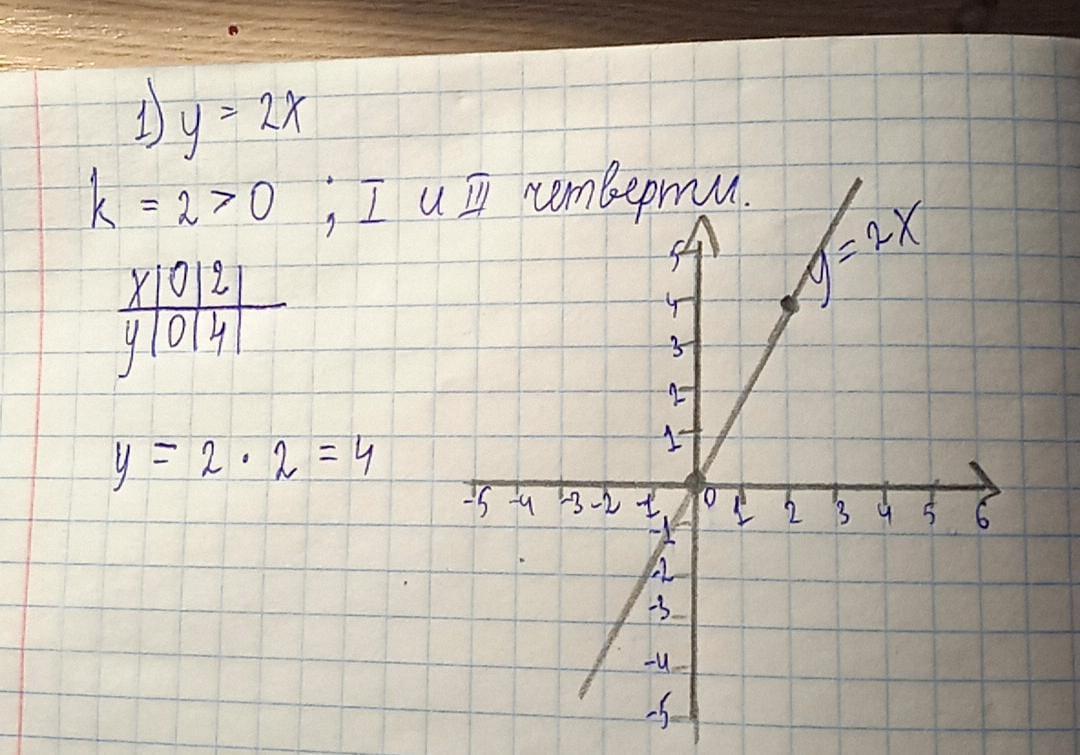 1) y = 2x
k = 2 > 0 ; I и III четверти.
x | 0 | 2 |
y | 0 | 4 |
y = 2 · 2 = 4
y = 2x
5
4
3
2
1
-5 -4 -3 -2 -1 0 1 2 3 4 5 6
-1
-2
-3
-4
-5